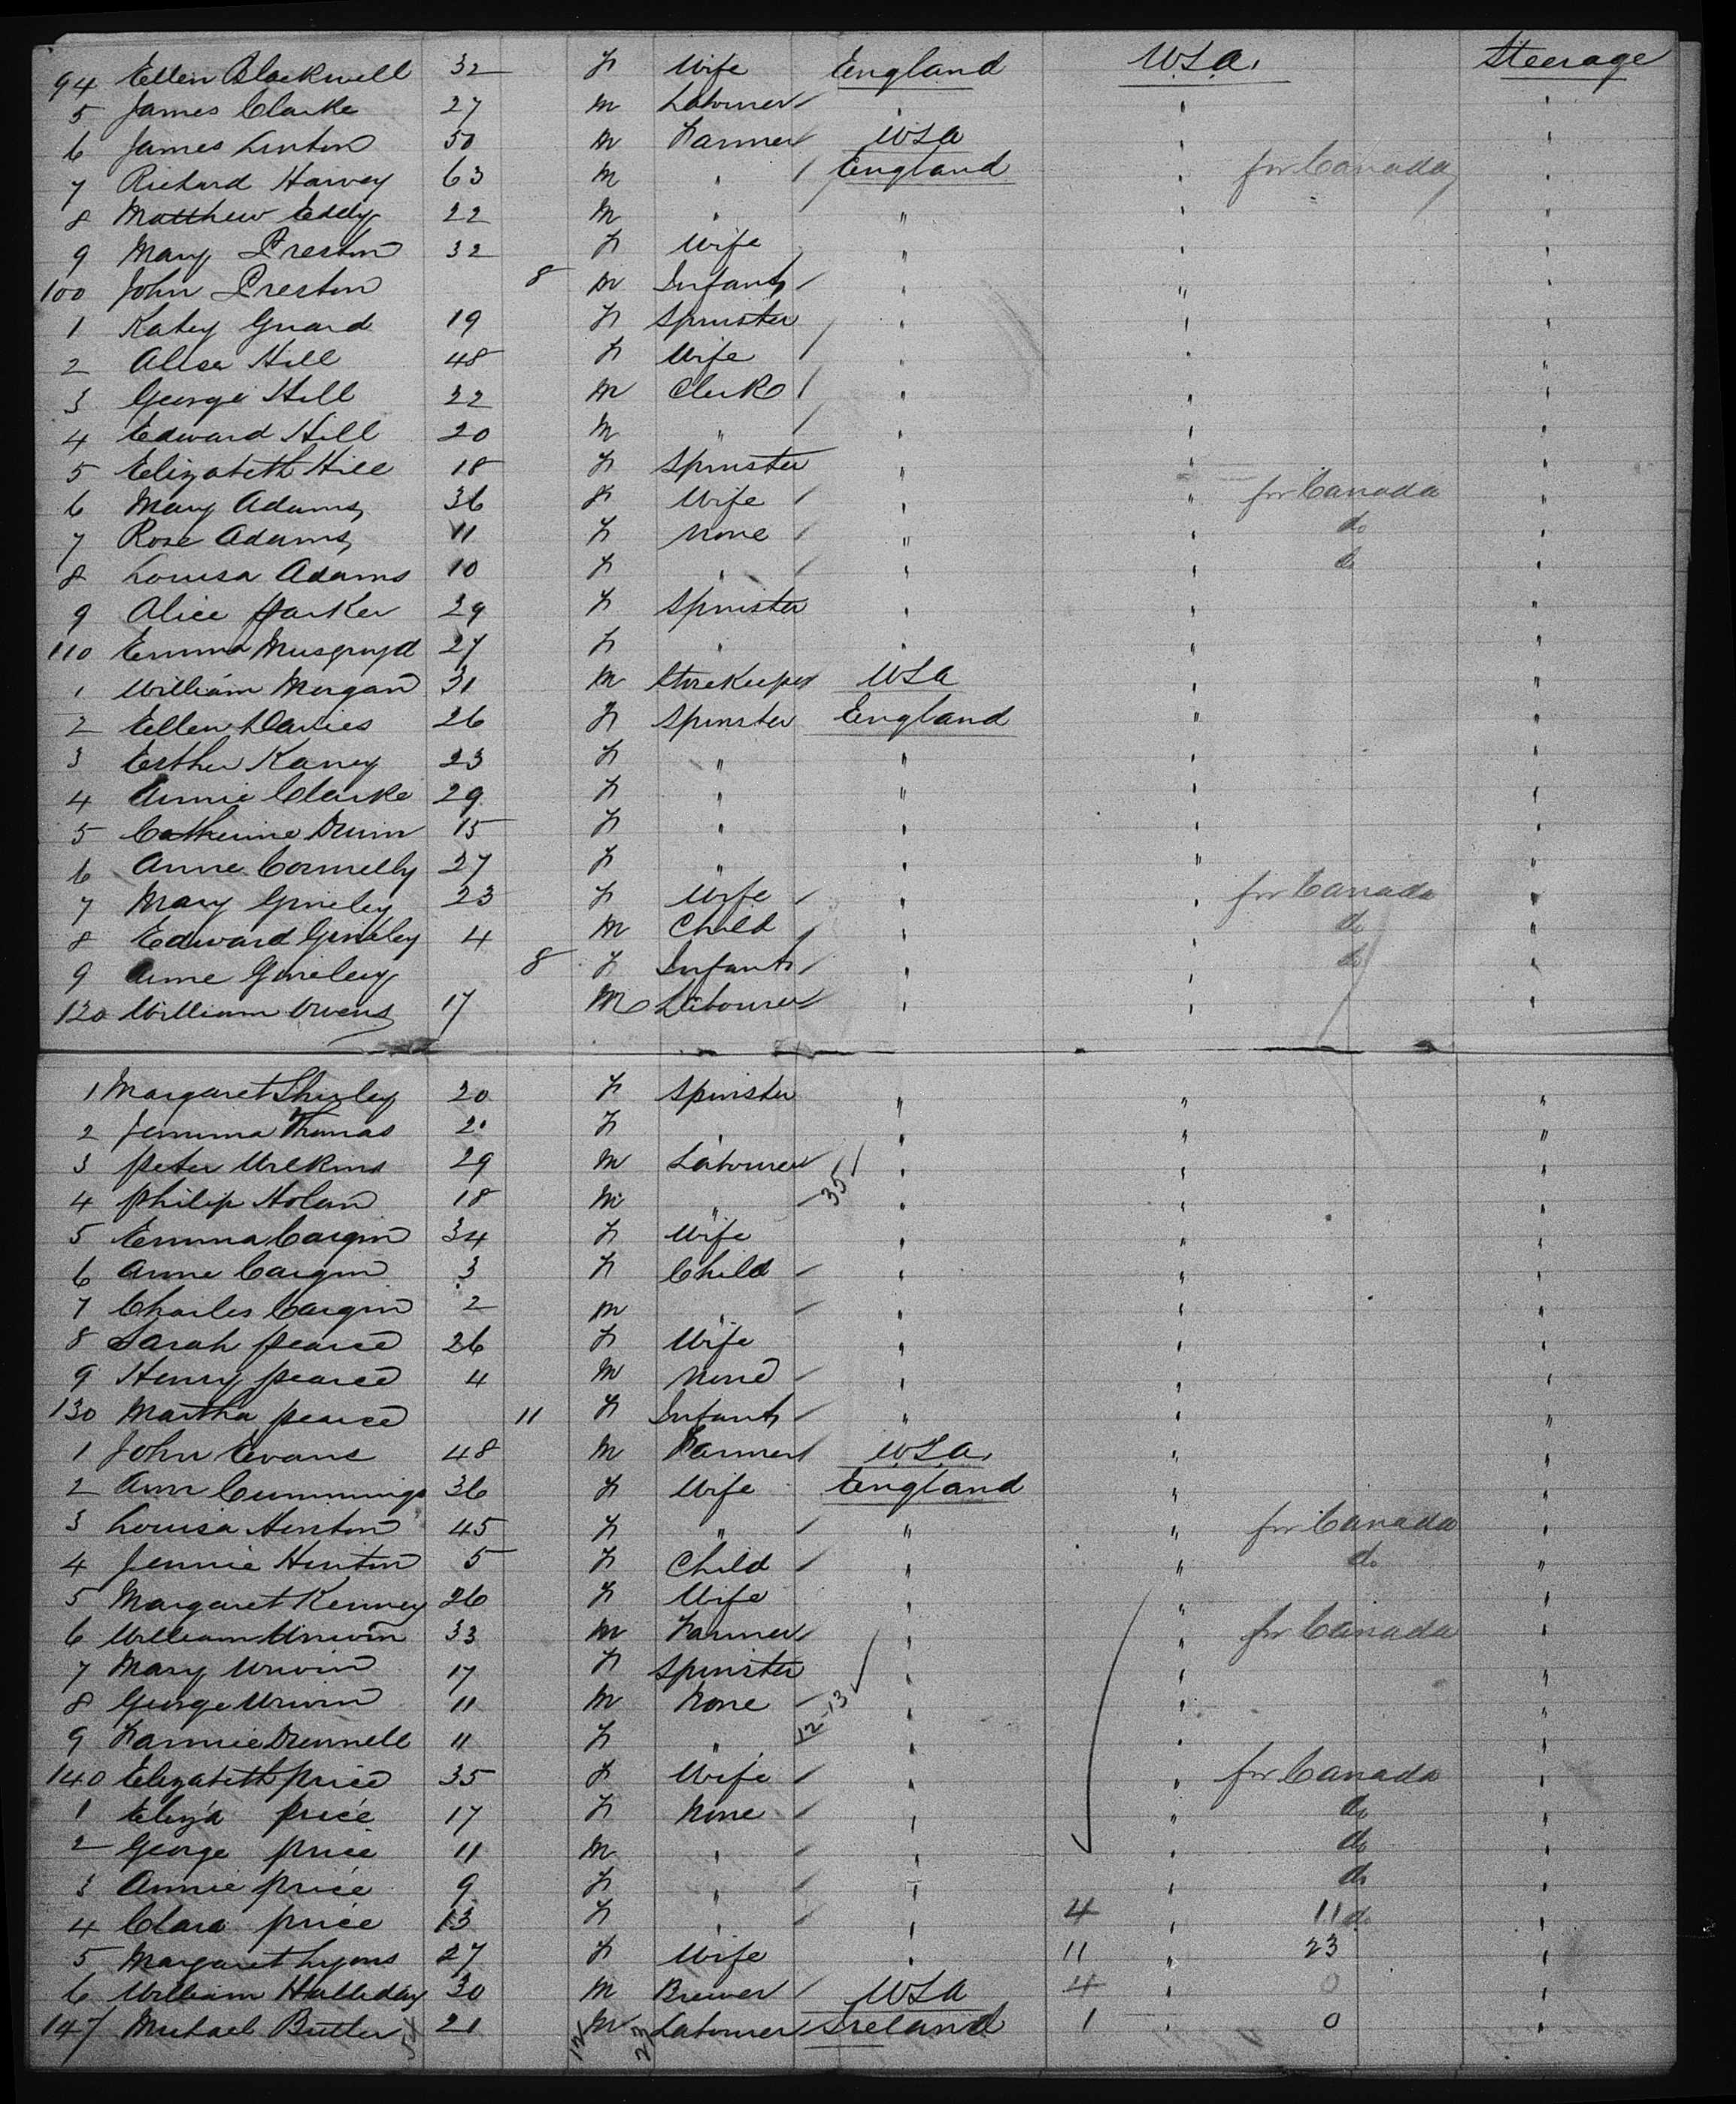 94 Ellen Blackwell 32 F Wife England U.S.A. Steerage
5 James Clarke 27 M Labourer " " "
6 James Linton 50 M Farmer U.S.A. " "
7 Richard Harvey 63 M " England " for Canada "
8 Matthew Eddy 22 M " " " "
9 Mary Preston 32 F Wife " " "
100 John Preston 8 M Infant " " "
1 Katey Guard 19 F Spinster " " "
2 Alisa Hill 48 F Wife " " "
3 George Hill 22 M Clerk " " "
4 Edward Hill 20 M " " " "
5 Elizabeth Hill 18 F Spinster " " "
6 Mary Adams 36 F Wife " " for Canada "
7 Rose Adams 11 F None " " do "
8 Louisa Adams 10 F " " " do "
9 Alice Parker 29 F Spinster " " "
110 Emma 27 F " " " "
1 William Morgan 31 M Storekeeper U.S.A. " "
2 Ellen Davies 26 F Spinster England " "
3 Esther Kaney 23 F " " " "
4 Annie Clarke 29 F " " " "
5 Catherine Dunn 15 F " " " "
6 Anne Connelly 27 F " " " "
7 Mary 23 F Wife " " for Canada "
8 Edward 4 M Child " " do "
9 Anne 8 F Infant " " do "
120 William Owens 17 M Labourer " " "
1 Margaret Shirley 20 F Spinster " " "
2 Jemima Thomas 20 F " " " "
3 Peter Wilkins 29 M Labourer " " "
4 Philip Holan 18 M " 35 " " "
5 Emma Cargin 34 F Wife " " "
6 Anne Cargin 3 F Child " " "
7 Charles Cargin 2 M " " " "
8 Sarah Pearce 26 F Wife " " "
9 Henry Pearce 4 M None " " "
130 Martha Pearce 11 F Infant " " "
1 John Evans 48 M Farmer U.S.A. " "
2 Ann Cummings 36 F Wife England " "
3 Louisa Hinton 45 F " " " for Canada "
4 Jennie Hinton 5 F Child " " do "
5 Margaret Kenney 26 F Wife " " "
6 William Unwin 33 M Farmer " " for Canada "
7 Mary Unwin 17 F Spinster " " "
8 George Unwin 11 M None " " "
9 Fannie Dunnell 11 F " 12-13 " " "
140 Elizabeth Price 35 F Wife " " for Canada "
1 Eliza Price 17 F None " " do "
2 George Price 11 M " " " do "
3 Annie Price 9 F " " " do "
4 Clara Price 13 F " " 4 " 11 do "
5 Margaret Lyons 27 F Wife " 11 " 23 "
6 William Halliday 30 M Brewer U.S.A. 4 " 0 "
147 Michael Butler 21 M Labourer Ireland 1 " 0 "
54 12 23